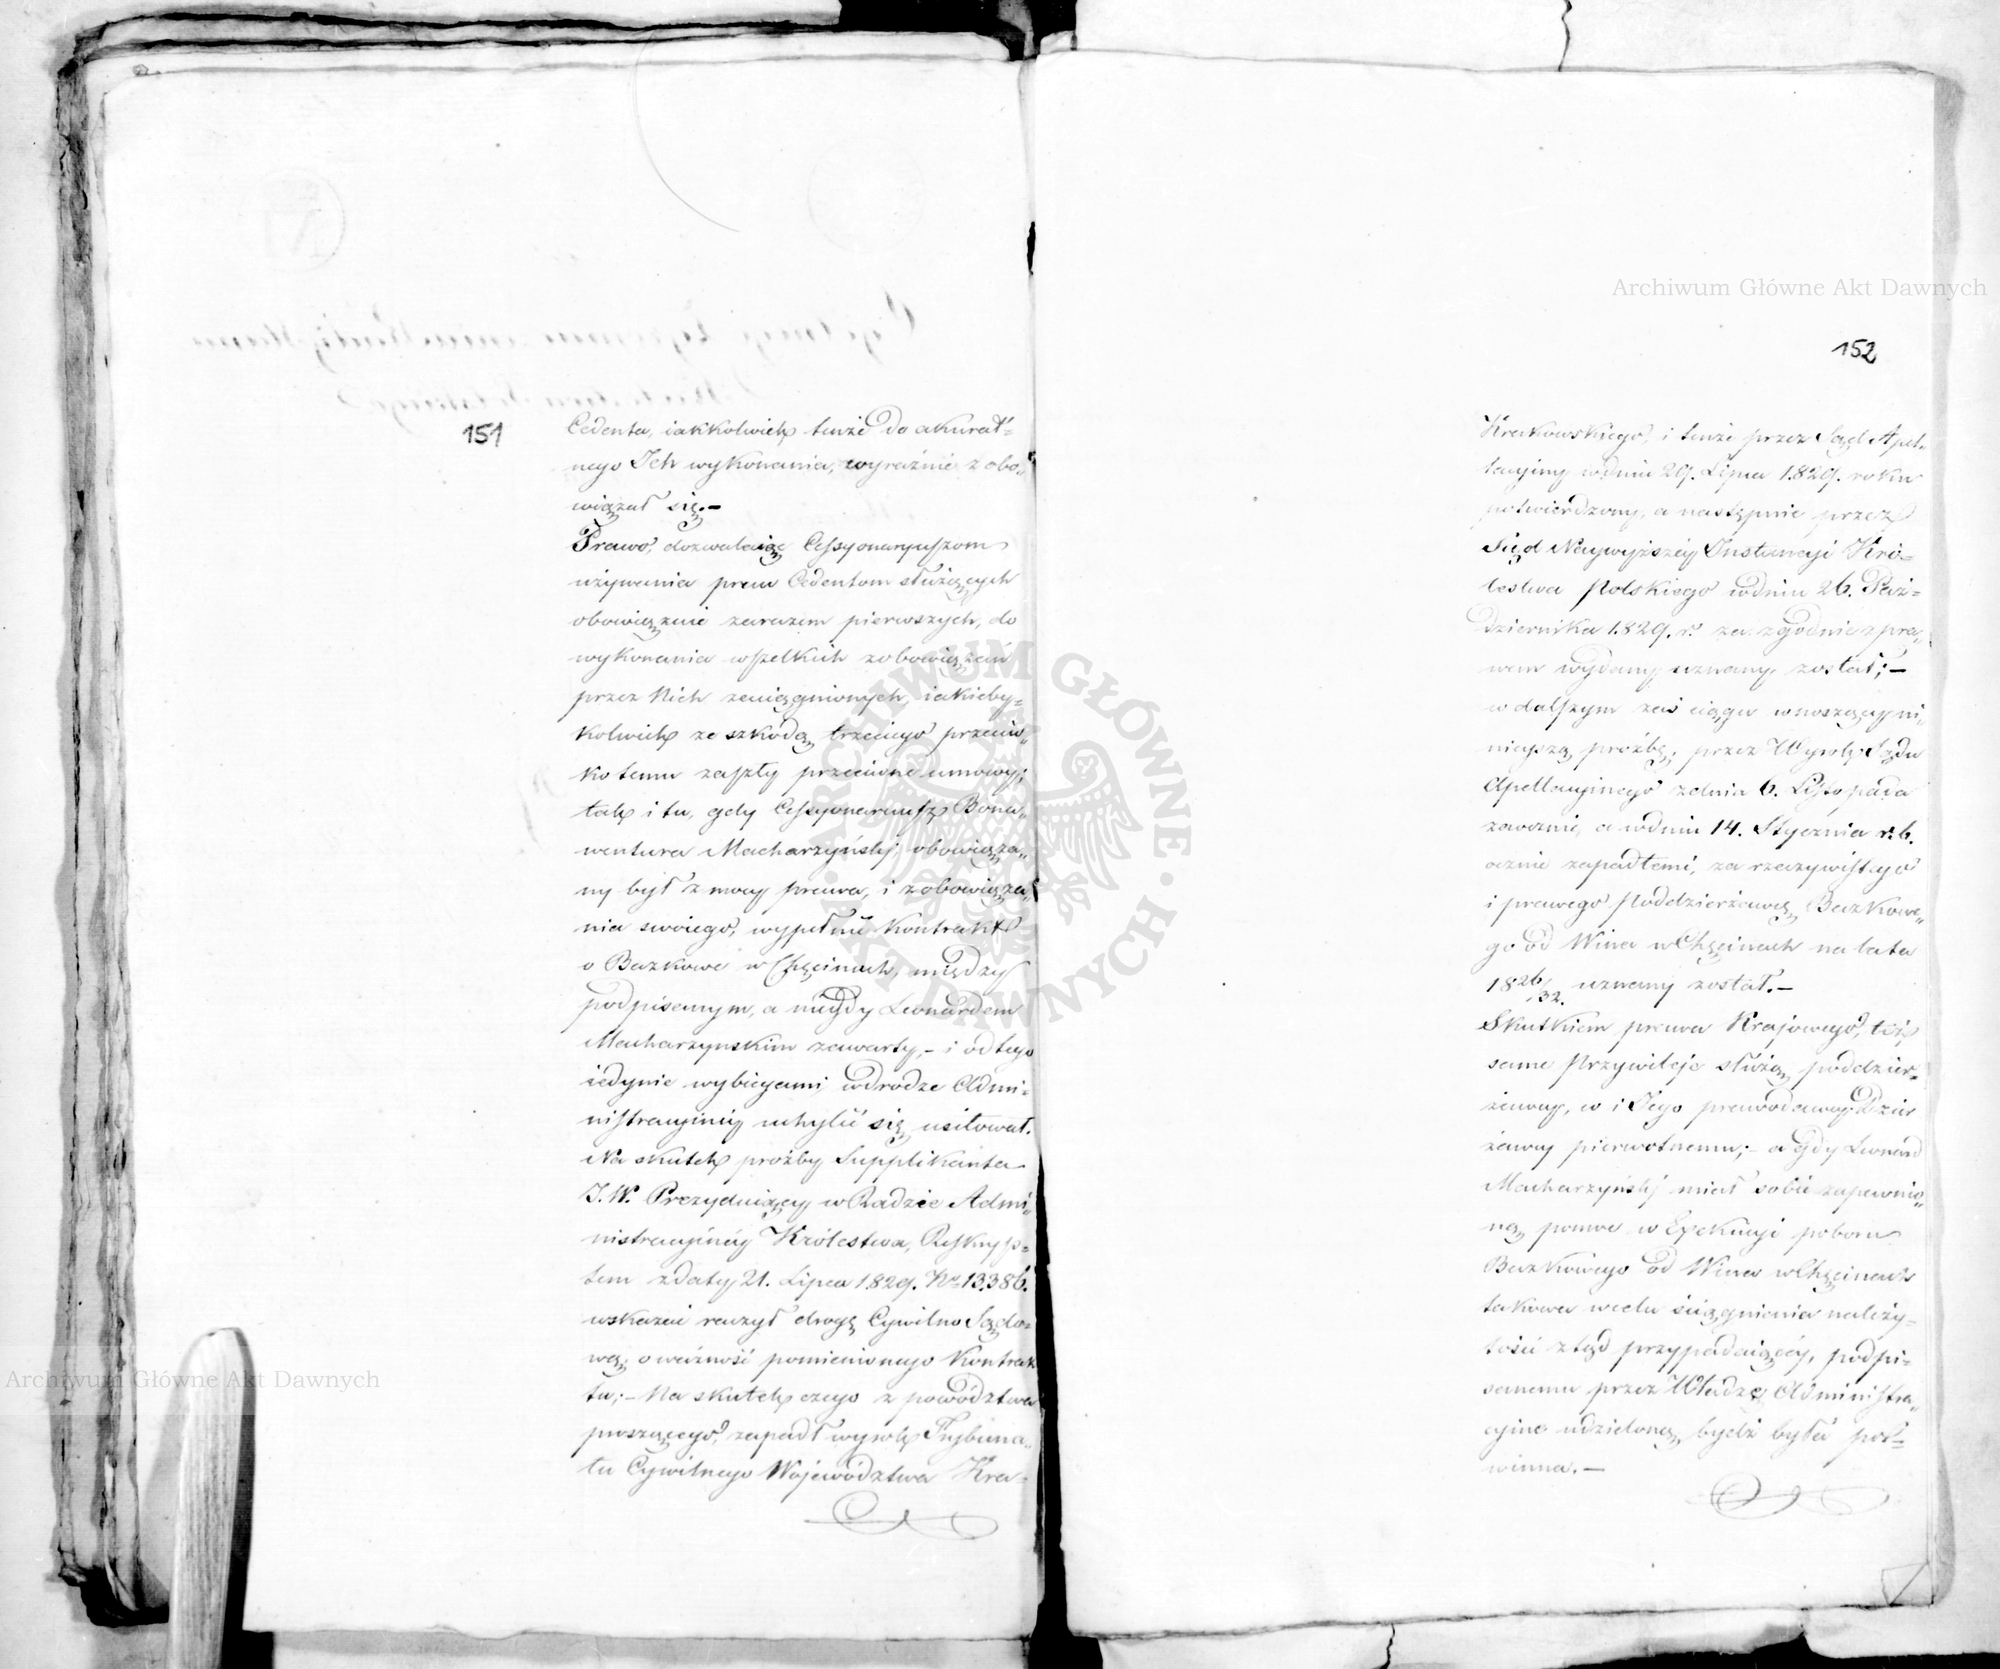 151
Cedenta, iakkolwiek tenże do akurat-
nego Ich wykonania, wyraźnie zobo-
wiązał się.—
Prawo, dozwalaiąc Cessyonaryuszom
używania praw Cedentom służących
obowiązuie zarazem pierwszych, do
wykonania wszelkich zobowiązań
przez Nich zaciągnionych, iakieby-
kolwiek ze szkodą trzeciego przeciw-
ko temu zaszły przeciwne umowy;
tak i tu, gdy Cessyonariusz Bona-
wentura Macharzyński obowiąza-
ny był z mocy prawa, i zobowiąza-
nia swoiego, wypełnić Kontrakt
o Bazkowe w Chęcinach, między
podpisanym, a między Leonardem
Macharzynskim zawarty,— i od tego
iedynie wybiegami w drodze Admi-
nistracyiney uchylić się usiłował.
Na skutek prożby Supplikanta
J.W. Prezyduiący w Radzie Admi-
nistracyinéy Królestwa, Reskryp-
tem z daty 21. Lipca 1829. No 13386.
wskazać raczył drogę Cywilno Sądo-
wą, o ważność pomienionego Kontrak
tu;— Na skutek czego z powództwa
proszącego, zapadł wyrok Trybuna-
łu Cywilnego Województwa Kra-
152
Krakowskiego, i tenże przez Sąd Apel-
lacyiny w dniu 29. Lipca 1829. roku
potwierdzony, a następnie przez
Sąd Naywyższéy Instancyi Kró-
lestwa Polskiego w dniu 26. Paź-
dziernika 1829. r. za zgodnie z pra-
wem wydany uznany został;—
w dalszym zaś ciągu wnoszący ni-
nieyszą próźbę, przez Wyrok Sądu
Apellacyinego z dnia 6. Listopada
zaocznie, a w dniu 14. Stycznia r. b.
ocznie zapadłemi, za rzeczywistego
i prawego Poddzierżawcę Bazkowe-
go od Wina w Chęcinach na lata
1826/32. uznany został.—
Skutkiem prawa Krajowego, też
same Przywileje służą poddzier-
żawcy, co i Jego prawodawcy Dzier
żawcy pierwotnemu;— a gdy Leonard
Macharzyński miał sobie zapewnio-
ną pomoc w Exekucyi poboru
Bazkowego od Wina w Chęcinach
takowa w celu ściągnienia należy-
tości ztąd przypadaiącéy, podpi-
sanemu przez Władzę Administra-
cyine udzieloną bydź była po-
winna.—
Archiwum Główne Akt Dawnych
Archiwum Główne Akt Dawnych
ARCHIWUM GŁÓWNE AKT DAWNYCH